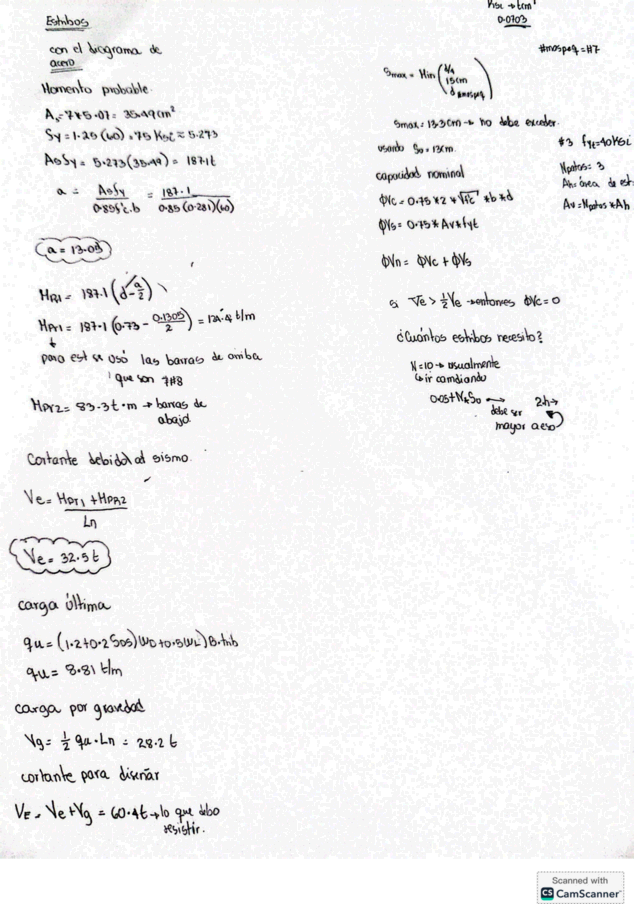 Estribos
con el diagrama de
acero
Momento probable.
As=7*5.07= 35.49cm²
Sy=1.25(60)=75 Ksi ≈ 5.273
AsSy= 5.273(35.49)= 187.1t
a = AsSy / 0.85f'c.b = 187.1 / 0.85(0.281)(60)
a=13.05
MPr1= 187.1(d-a/2)
MPr1= 187.1(0.73 - 0.1305/2)= 124.4 t/m
para est se usó las barras de arriba
que son 7#8
MPr2= 83.3t·m → barras de
abajo
Cortante debido al sismo.
Ve= MPr1 + MPR2 / Ln
Ve= 32.5t
carga última
qu=(1.2+0.2SDS)WD+0.5WL)B.trib
qu= 8.81 t/m
carga por gravedad
Vg= 1/2 qu.Ln = 28.2 t
cortante para diseñar
VE= Ve+Vg = 60.4t → lo que debo
resistir.
Ksi → tcm²
0.0703
#maspeq=#7
Smax= Min (d/4
15cm
d maspeq)
Smax=13.3cm → no debe exceder.
usando So=13cm.
#3 fyt=40Ksi
capacidad nominal
Npatas= 3
Ab=área de est
ΦVc= 0.75*2*√f'c *b*d
Av=Npatas*Ab
ΦVs= 0.75*Av*fyt
ΦVn= ΦVc + ΦVs
si Ve > 1/2Ve → entonces ΦVc=0
¿Cuántos estribos necesito?
N=10 → usualmente
ir cambiando
0.05+N*So → 2h→
debe ser
mayor a eso
Scanned with
CS CamScanner